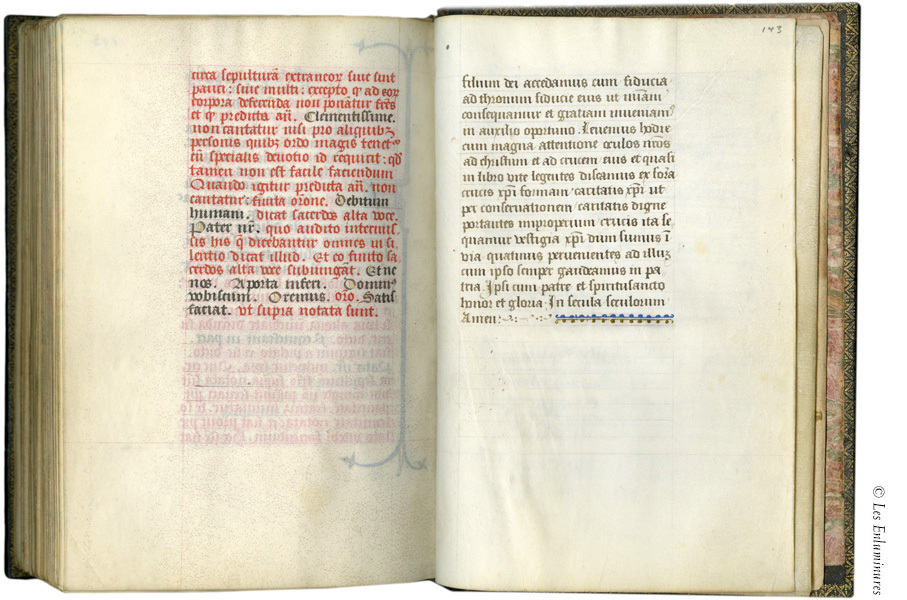 circa sepulturā extraneoꝝ siue sint
pauci: siue multi: excepto ꝙ ad eoꝝ
corpora defferenda non ponātur frēs
et ꝙ predicta añ. Clementissime.
non cantatur nisi pro aliquibꝫ
personis quibꝫ ordo magis tenet᷒
cū specialis deuotio id requirit: qđ
tamen non est facile faciendum
Quando igitur predicta añ. non
cantatur: finita orōne. Debitum
humani. dicat sacerdos alta uoce.
Pater nr̄. quo audito infirmis
sis his ꝗ dicebantur omnes in si
lentio dicat illud. Et eo finito sa
cerdos alta uoce subiungāt. Et ne
nos. A porta inferi. Dominꝰ
vobiscum. Oremus. orō. Satis
faciat. vt supra notata sunt.
143
filium dei accedamus cum fiducia
ad thronum fiducie eius ut mīam
consequamur et gratiam inueniamꝰ
in auxilio oportuno. Leuemus hodie
cum magna attentione oculos nr̄os
ad christum et ad crucem eius et quasi
in libro vite legentes discamus ex fora
crucis xp̄i formam caritatis xp̄i ut
per conseruationem caritatis digne
portantes improperium crucis ita se
quamur vestigia xp̄i dum sumus ī
via quatinus peruenientes ad illuꝫ
cum ipso semper gaudeamus in pa
tria. Ipsi cum patre et spiritusancto
honor et gloria. In secula seculorum
Amen:
© Les Enluminures